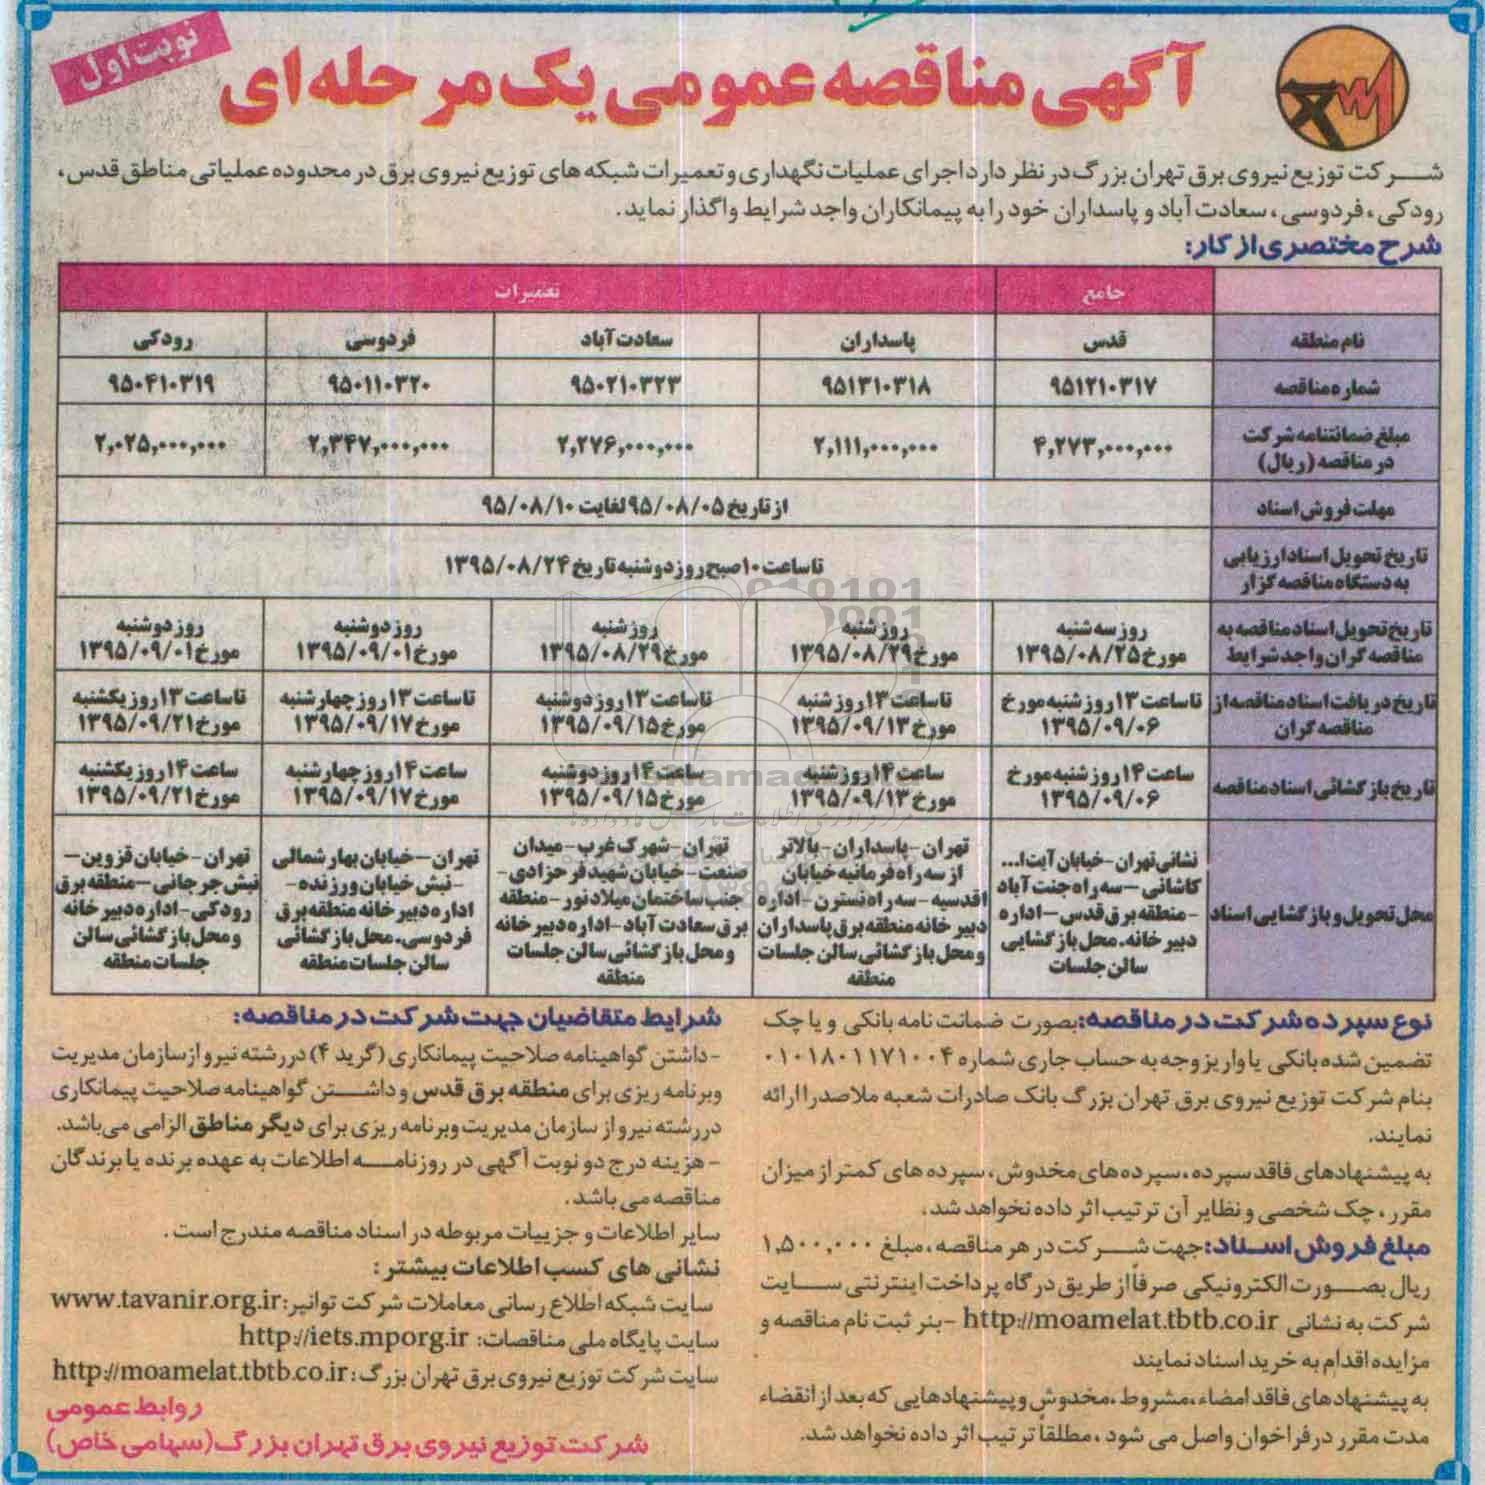 نوبت اول
آگهی مناقصه عمومی یک مرحله‌ای
شرکت توزیع نیروی برق تهران بزرگ در نظر دارد اجرای عملیات نگهداری و تعمیرات شبکه های توزیع نیروی برق در محدوده عملیاتی مناطق قدس،
رودکی، فردوسی، سعادت آباد و پاسداران خود را به پیمانکاران واجد شرایط واگذار نماید.
شرح مختصری از کار:
جامع تعمیرات
نام منطقه قدس پاسداران سعادت آباد فردوسی رودکی
شماره مناقصه ۹۵۱۲۱۰۳۱۷ ۹۵۱۳۱۰۳۱۸ ۹۵۰۲۱۰۳۲۳ ۹۵۰۱۱۰۳۲۰ ۹۵۰۴۱۰۳۱۹
مبلغ ضمانتنامه شرکت
در مناقصه (ریال) ۴,۲۷۳,۰۰۰,۰۰۰ ۲,۱۱۱,۰۰۰,۰۰۰ ۲,۲۷۶,۰۰۰,۰۰۰ ۲,۳۴۷,۰۰۰,۰۰۰ ۲,۰۲۵,۰۰۰,۰۰۰
مهلت فروش اسناد از تاریخ ۹۵/۰۸/۰۵ لغایت ۹۵/۰۸/۱۰
تاریخ تحویل اسناد ارزیابی
به دستگاه مناقصه گزار تا ساعت ۱۰ صبح روز دوشنبه تاریخ ۱۳۹۵/۰۸/۲۴
تاریخ تحویل اسناد مناقصه به
مناقصه گران واجد شرایط
روز سه شنبه
مورخ ۱۳۹۵/۰۸/۲۵
روز شنبه
مورخ ۱۳۹۵/۰۸/۲۹
روز شنبه
مورخ ۱۳۹۵/۰۸/۲۹
روز دوشنبه
مورخ ۱۳۹۵/۰۹/۰۱
روز دوشنبه
مورخ ۱۳۹۵/۰۹/۰۱
تاریخ دریافت اسناد مناقصه از
مناقصه گران
تا ساعت ۱۳ روز شنبه مورخ
۱۳۹۵/۰۹/۰۶
تا ساعت ۱۳ روز شنبه
مورخ ۱۳۹۵/۰۹/۱۳
تا ساعت ۱۳ روز دوشنبه
مورخ ۱۳۹۵/۰۹/۱۵
تا ساعت ۱۳ روز چهارشنبه
مورخ ۱۳۹۵/۰۹/۱۷
تا ساعت ۱۳ روز یکشنبه
مورخ ۱۳۹۵/۰۹/۲۱
تاریخ بازگشائی اسناد مناقصه
ساعت ۱۴ روز شنبه مورخ
۱۳۹۵/۰۹/۰۶
ساعت ۱۴ روز شنبه
مورخ ۱۳۹۵/۰۹/۱۳
ساعت ۱۴ روز دوشنبه
مورخ ۱۳۹۵/۰۹/۱۵
ساعت ۱۴ روز چهارشنبه
مورخ ۱۳۹۵/۰۹/۱۷
ساعت ۱۴ روز یکشنبه
مورخ ۱۳۹۵/۰۹/۲۱
محل تحویل و بازگشایی اسناد
نشانی تهران - خیابان آیت ا...
کاشانی - سه راه جنت آباد
- منطقه برق قدس - اداره
دبیرخانه. محل بازگشایی
سالن جلسات
تهران - پاسداران - بالاتر
از سه راه فرمانیه خیابان
اقدسیه - سه راه نسترن - اداره
دبیرخانه منطقه برق پاسداران
و محل بازگشائی سالن جلسات
منطقه
تهران - شهرک غرب - میدان
صنعت - خیابان شهید فرحزادی -
جنب ساختمان میلاد نور - منطقه
برق سعادت آباد - اداره دبیرخانه
و محل بازگشائی سالن جلسات
منطقه
تهران - خیابان بهار شمالی
- نبش خیابان ورزنده -
اداره دبیرخانه منطقه برق
فردوسی. محل بازگشائی
سالن جلسات منطقه
تهران - خیابان قزوین -
نبش جرجانی - منطقه برق
رودکی - اداره دبیرخانه
و محل بازگشائی سالن
جلسات منطقه
نوع سپرده شرکت در مناقصه: بصورت ضمانت نامه بانکی و یا چک
تضمین شده بانکی یا واریز وجه به حساب جاری شماره ۰۱۰۱۸۰۱۱۷۱۰۰۴
بنام شرکت توزیع نیروی برق تهران بزرگ بانک صادرات شعبه ملاصدرا ارائه
نمایند.
به پیشنهادهای فاقد سپرده، سپرده های مخدوش، سپرده های کمتر از میزان
مقرر، چک شخصی و نظایر آن ترتیب اثر داده نخواهد شد.
مبلغ فروش اسناد: جهت شرکت در هر مناقصه، مبلغ ۱,۵۰۰,۰۰۰
ریال بصورت الکترونیکی صرفاً از طریق درگاه پرداخت اینترنتی سایت
شرکت به نشانی http://moamelat.tbtb.co.ir - بنر ثبت نام مناقصه و
مزایده اقدام به خرید اسناد نمایند
به پیشنهادهای فاقد امضاء، مشروط، مخدوش و پیشنهادهایی که بعد از انقضاء
مدت مقرر در فراخوان واصل می شود، مطلقاً ترتیب اثر داده نخواهد شد.
شرایط متقاضیان جهت شرکت در مناقصه:
- داشتن گواهینامه صلاحیت پیمانکاری (گرید ۴) در رشته نیرو از سازمان مدیریت
و برنامه ریزی برای منطقه برق قدس و داشتن گواهینامه صلاحیت پیمانکاری
در رشته نیرو از سازمان مدیریت و برنامه ریزی برای دیگر مناطق الزامی می باشد.
- هزینه درج دو نوبت آگهی در روزنامه اطلاعات به عهده برنده یا برندگان
مناقصه می باشد.
سایر اطلاعات و جزییات مربوطه در اسناد مناقصه مندرج است.
نشانی های کسب اطلاعات بیشتر:
سایت شبکه اطلاع رسانی معاملات شرکت توانیر: www.tavanir.org.ir
سایت پایگاه ملی مناقصات: http://iets.mporg.ir
سایت شرکت توزیع نیروی برق تهران بزرگ: http://moamelat.tbtb.co.ir
روابط عمومی
شرکت توزیع نیروی برق تهران بزرگ (سهامی خاص)